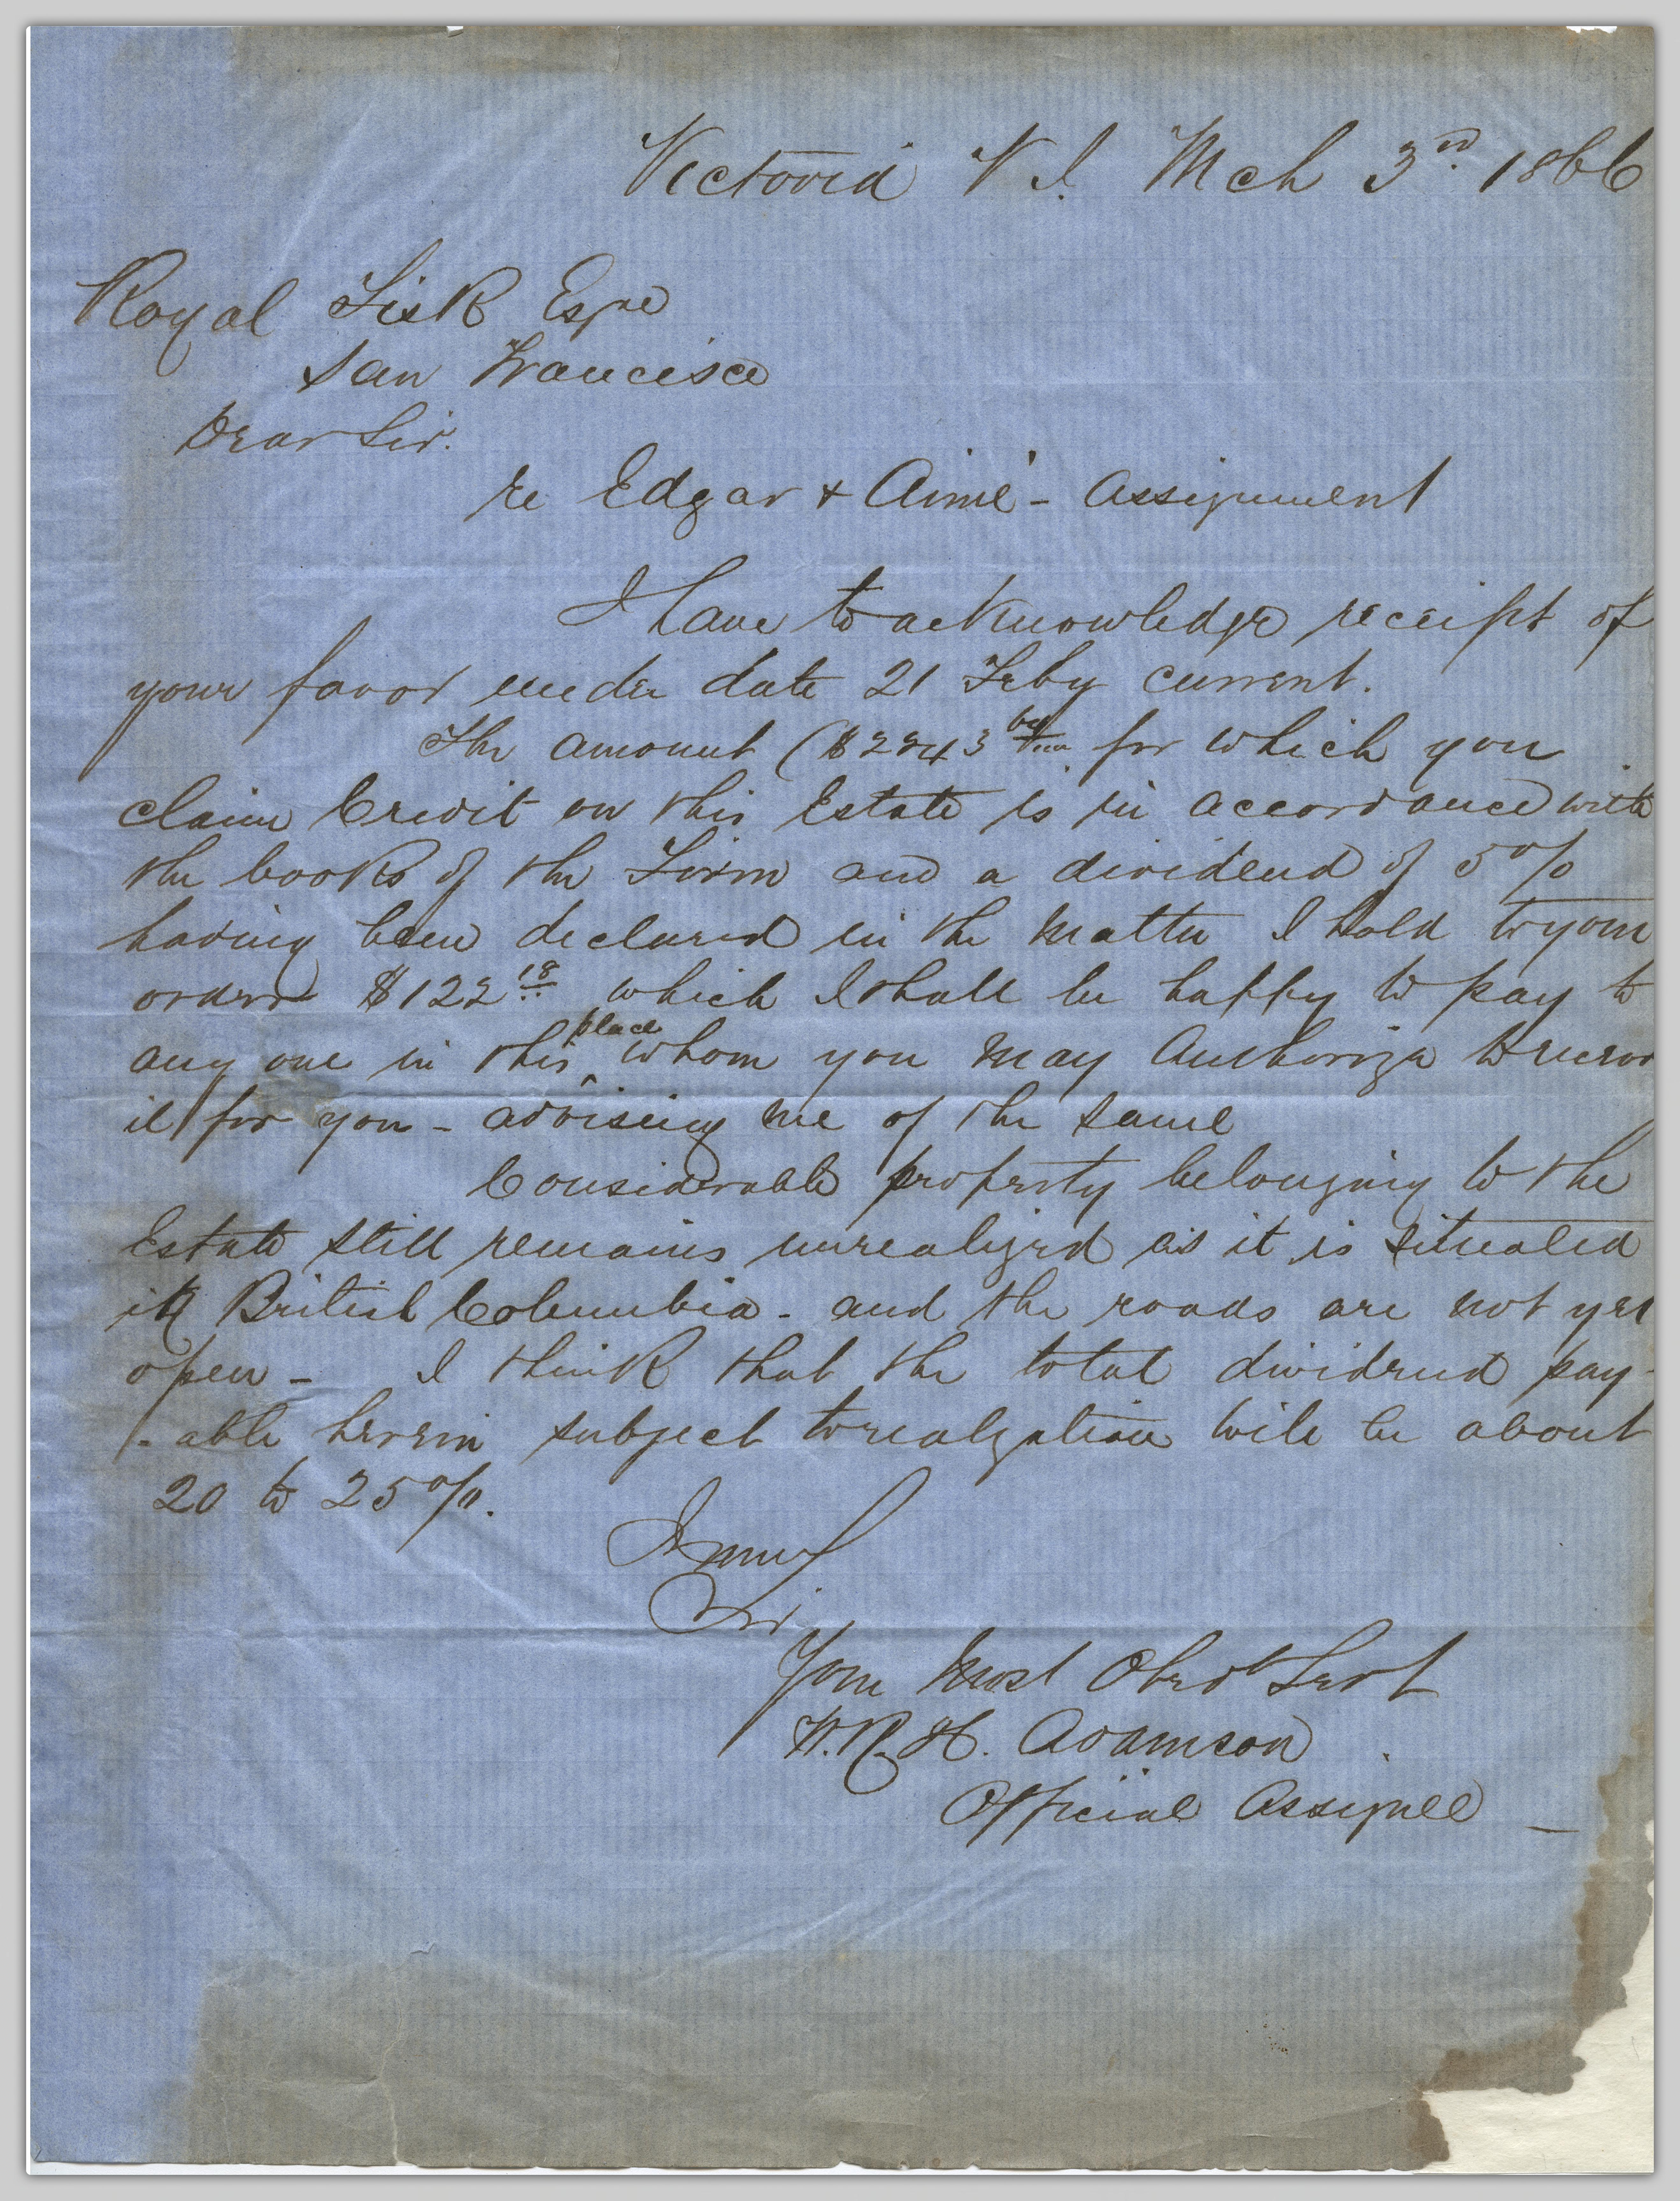 Victoria V. I. Mch 3rd. 1866
Royal Fisk Esqre
San Francisco
Dear Sir.
re Edgar & Aimé - Assignment
I have to acknowledge receipt of
your favor under date 21 Feby current.
The amount ($2243 for which you
claim Credit on this Estate is in accordance with
the books of the Firm and a dividend of 5%
having been declared in the matter I hold to your
order $122 18 which I shall be happy to pay to
any one in this place whom you may Authorize to receive
it for you - advising me of the same
Considerable property belonging to the
Estate still remains unrealized as it is situated
in British Columbia - and the roads are not yet
open - I think that the total dividend pay-
-able herein subject to realization will be about
20 to 25%.
I am
Sir
Your most Obedt Servt
W. R. H. Adamson
Official Assignee